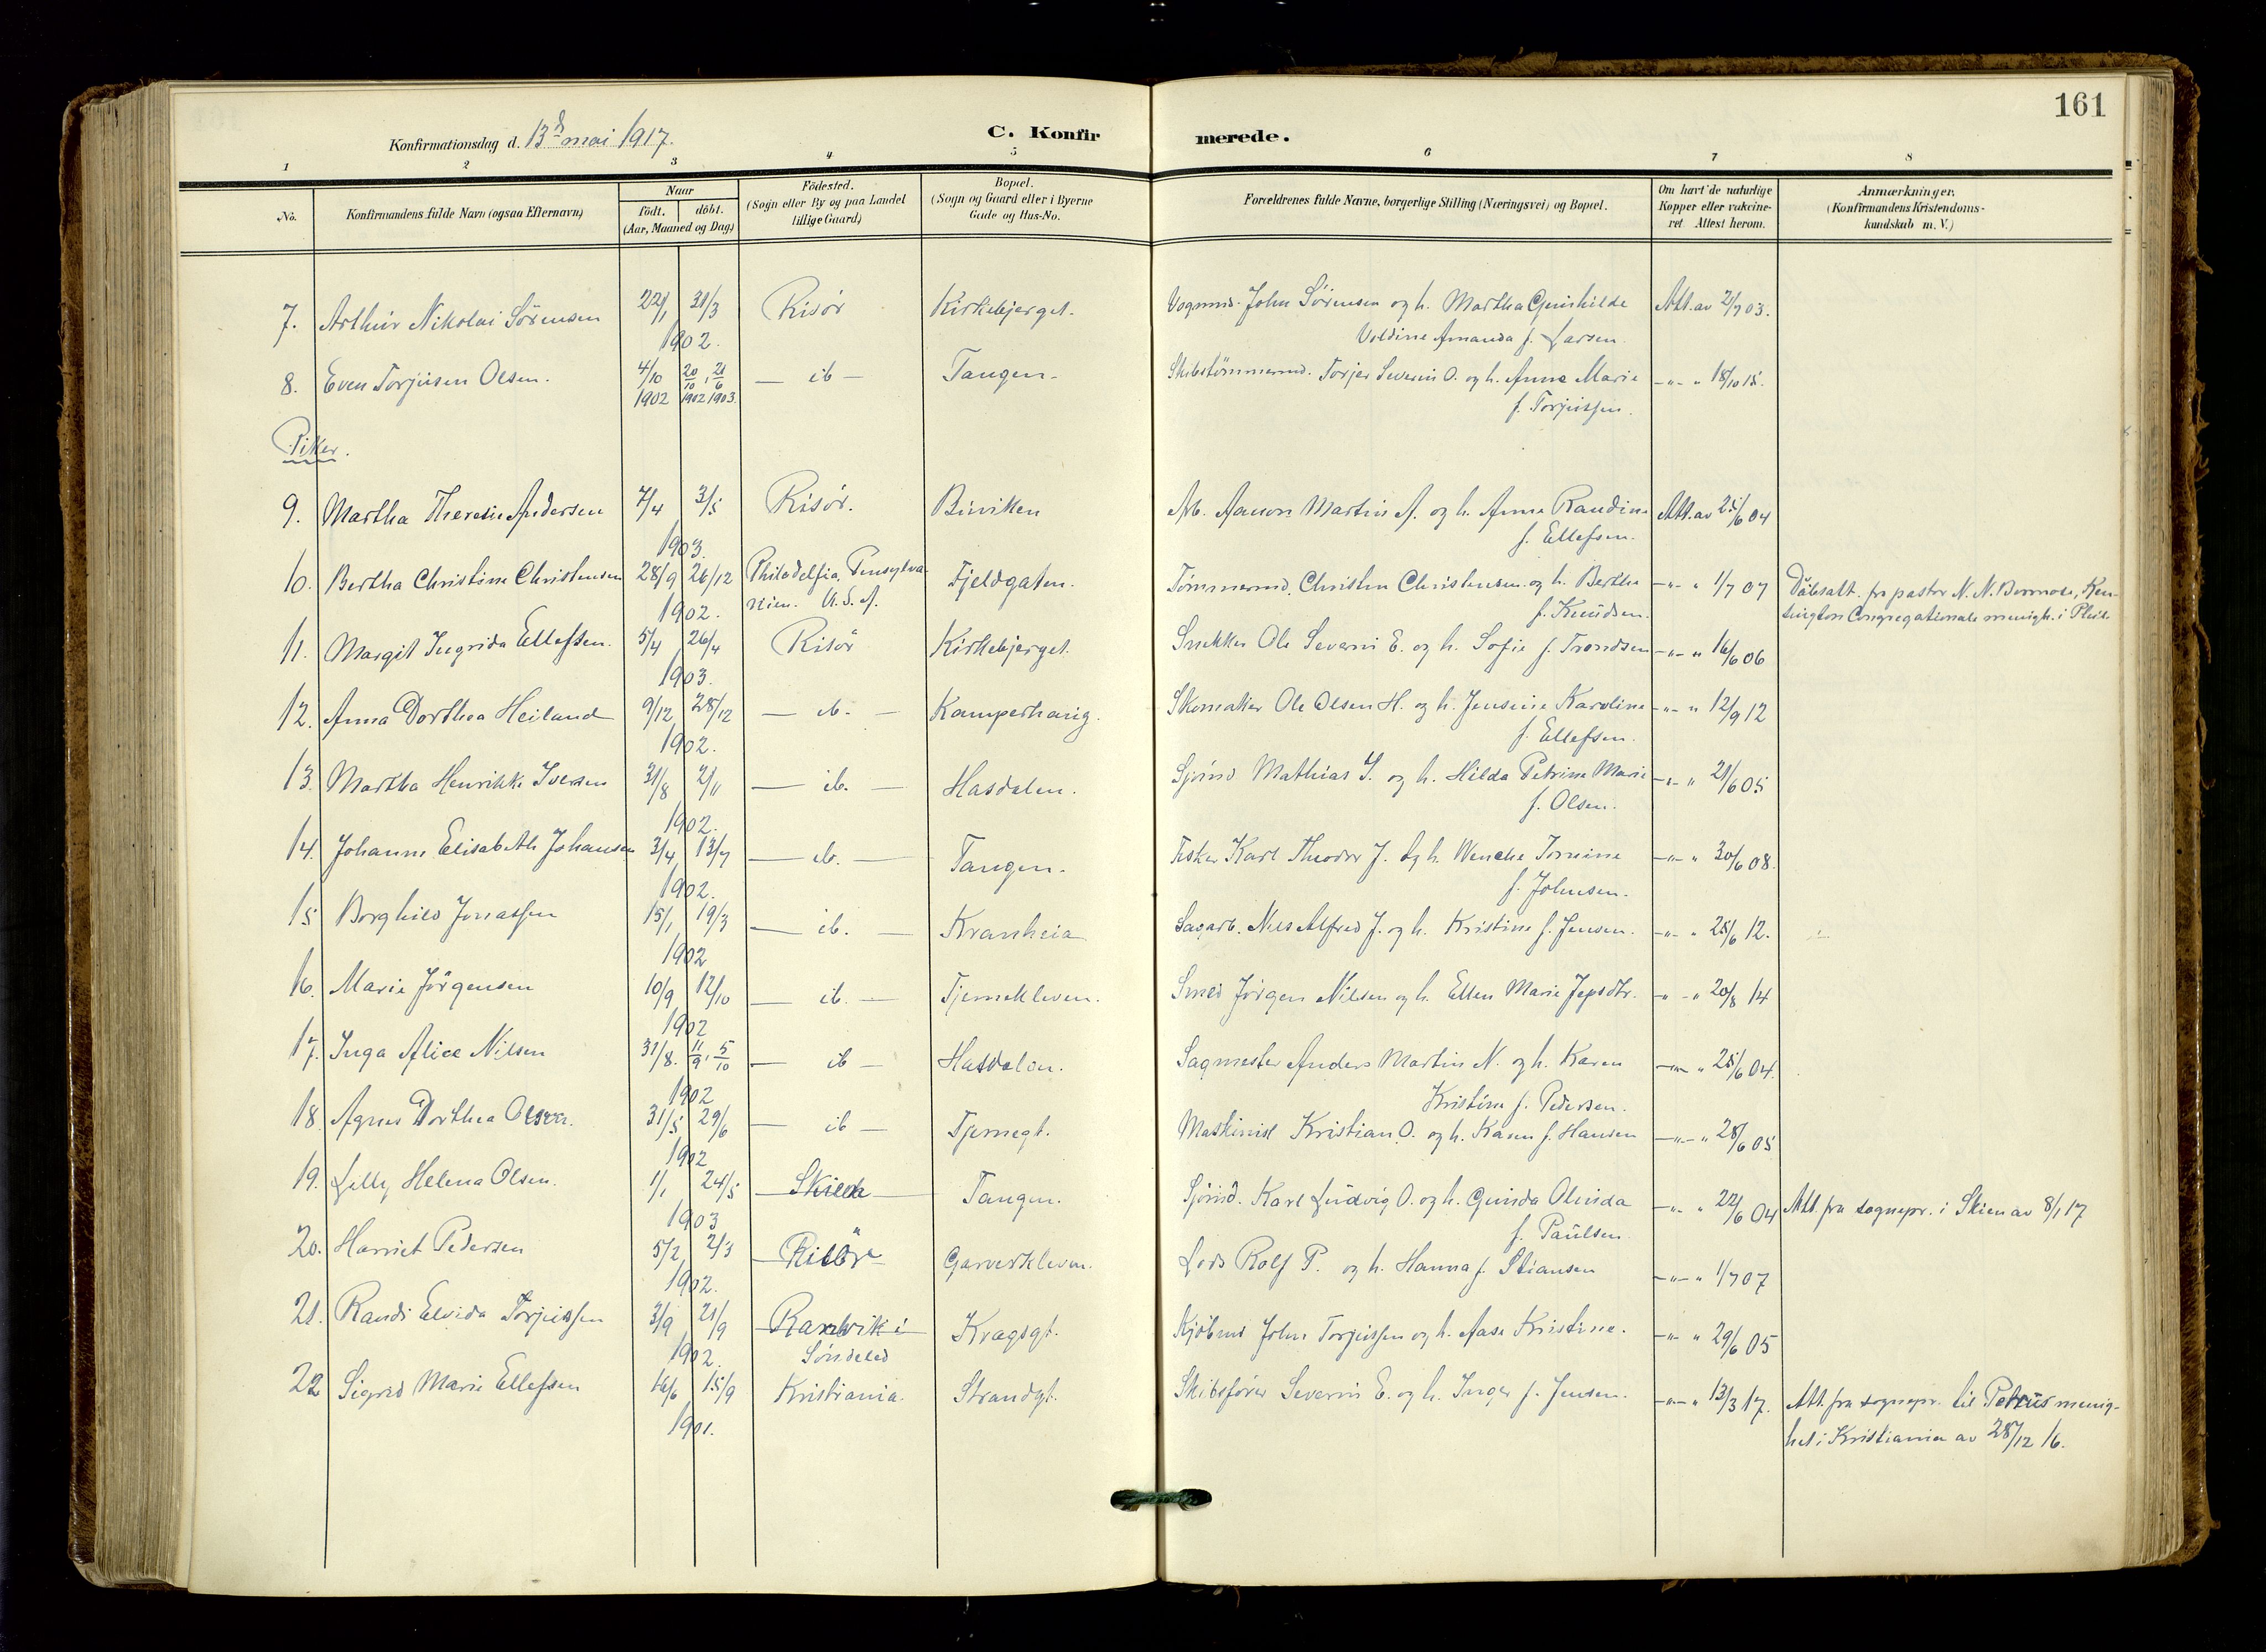 161
Konfirmationsdag d. 13de mai 1917. C. Konfirmerede.
1 2 3 4 5 6 7 8
No. Konfirmandens fulde Navn (ogsaa Efternavn) Naar födt. döbt. (Aar, Maaned og Dag) Födested. (Sogn eller By og paa Landet tillige Gaard) Bopæl. (Sogn og Gaard eller i Byerne Gade og Hus-No. Forældrenes fulde Navne, borgerlige Stilling (Næringsvei) og Bopæl. Om havt de naturlige Kopper eller vakcineret Attest herom. Anmærkninger. (Konfirmandens Kristendomskundskab m. V.)
7. Arthur Nikolai Sörensen 22/1 31/3 Risör Kirkebjerget. Vognmd. John Sörensen og h. Martha Gunhilde Att. av 2/7 03.
1902. Voldine Amanda f. Larsen.
8. Even Torjusen Olsen. 4/10 20/10, 21/6 — ib — Tangen. Skibstömmermd. Torjer Severin O. og h. Anne Marie —"— " 18/10 15.
1902 1902 1903. f. Torjussen.
Piker.
9. Martha Theresie Andersen 7/4 3/5 Risör. Biviken Arb. Aanon Martin A. og h. Anne Randine Att. av 25/6 04
1903. f. Ellefsen.
10. Bertha Christine Christensen 28/9 26/12 Philadelfia, Pensylva- Fjeldgaten. Tömmermd. Christen Christensen og h. Berthe —"— " 1/7 07 Dåbsatt. fra pastor N. N. Bormose, Ken-
1902. nien. U.S.A. f. Knudsen. sington Congregationale menigh. i Phila.
11. Margit Ingrida Ellefsen. 5/4 26/4 Risör Kirkebjerget. Snekker Ole Severin E. og h. Sofie f. Trondsen —"— " 16/6 06
1903.
12. Anna Dorthea Heiland 9/12 28/12 — ib. — Kamperhaug. Skomaker Ole Olsen H. og h. Jensine Karoline —"— " 12/9 12
1902. f. Ellefsen.
13. Martha Henrikke Iversen 31/8 2/11 — ib. — Hasdalen. Sjömd Mathias I. og h. Hilda Petrine Marie —"— " 21/6 05
1902. f. Olsen.
14. Johanne Elisabeth Johansen 3/4 13/7 — ib. — Tangen. Fisker Karl Theodor J. og h. Wenche Tomine —"— " 30/6 08.
1902. f. Johnsen.
15 Borghild Jonassen 15/1 19/3 — ib. — Kranheia Sagarb. Nils Alfred J. og h. Kristine f. Jensen. —"— " 25/6 12.
1902
16. Marie Jörgensen 10/9 12/10 — ib. — Tjernekleven. Smed Jörgen Nilsen og h. Ellen Marie Jepsdtr. —"— " 20/8 14
1902
17. Inga Alice Nilsen 31/8. 11/9, 5/10 — ib — Hasdalen. Sagmester Anders Martin N. og h. Karen —"— " 25/6 04.
1902 Kristine f. Pedersen.
18. Agnes Dorthea Olsen. 31/5 29/6 — ib — Tjernegt. Maskinist Kristian O. og h. Karen f. Hansen —"— " 28/6 05
1902
19. Lilly Helena Olsen. 1/1 24/5 Skien Tangen. Sjömd. Karl Ludvig O. og h. Gunda Olinda —"— " 22/6 04 Att. fra sognepr. i Skien av 8/1 17
1903 f. Paulsen.
20. Harriet Pedersen 5/2 2/3 Risör Garverkleven. Lods Rolf P. og h. Hanna f. Stiansen —"— " 1/7 07
1902.
21. Randi Elvida Torjussen 3/9 21/9 Ranvik i Kragsgt. Kjöbmd John Torjussen og h. Aase Kristine. —"— " 29/6 05
1902. Söndeled
22 Sigrid Marie Ellefsen 16/6 15/9 Kristiania. Strandgt. Skibsförer Severin E. og h. Inger f. Jensen. —"— " 13/3 17. Att. fra sognepr. til Petrus menig-
1901. het i Kristiania av 28/12 16.